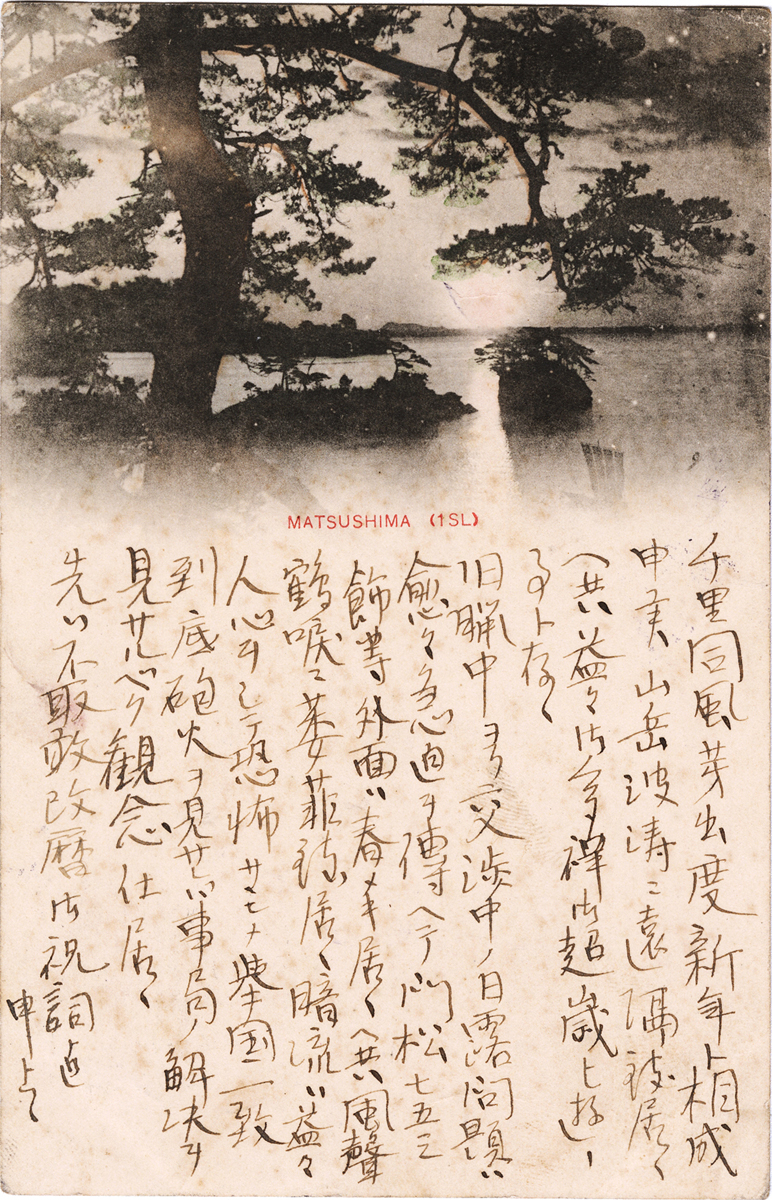 MATSUSHIMA (1SL)
千里同風芽出度新年ト相成
申矣山岳波涛ニ遠隔致居候
ヘ共益々御多祥御超歳
ト存候
旧臘中ヨリ交渉中ノ日露問題ハ
愈々急迫ヲ傳ヘテ門松七五三
飾等外面ハ春メキ居候ヘ共風聲
鶴唳ニ萎靡致居候暗流ハ益々
人心ヲシテ恐怖サセ挙国一致
到底砲火ヲ見サレハ事局ノ解決ヲ
見サルベク観念仕居候
先ハ不取敢改暦御祝詞迠
申上候